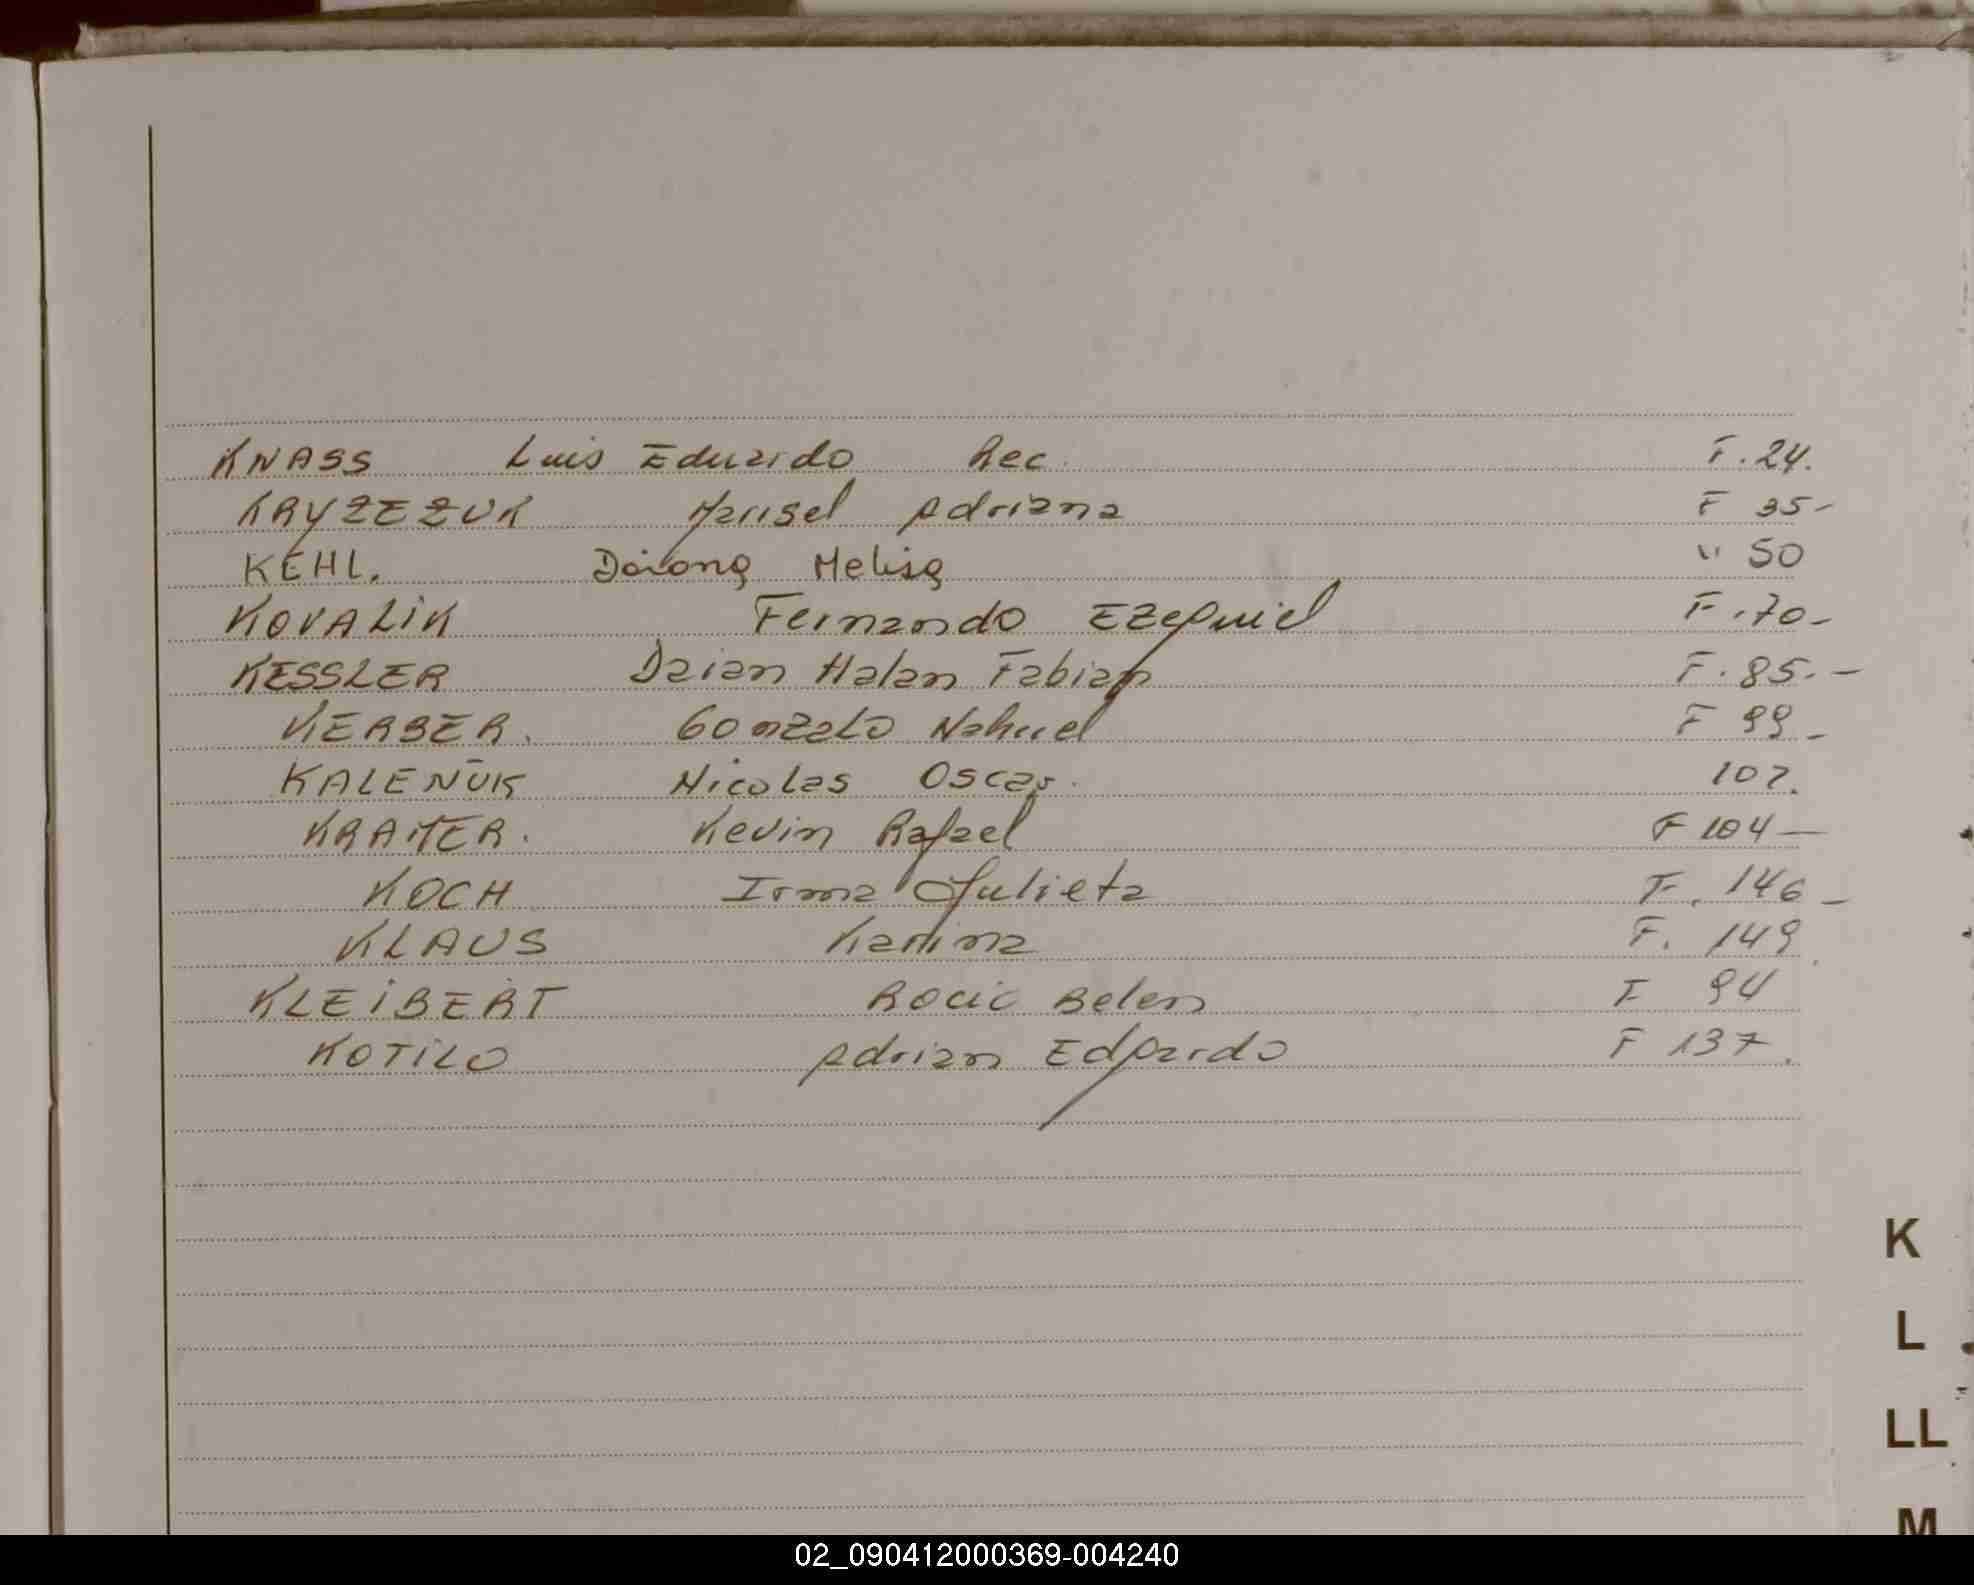 KNASS Luis Eduardo Rec. F. 24.
KRYZEZUK Marisel Adriana F 35-
KEHL. Daiana Melisa " 50
KOVALIK Fernando Ezequiel F. 70-
KESSLER Daian Halan Fabian F. 85.-
KERBER. Gonzalo Nahuel F 99-
KALEÑUK Nicolas Oscar. 102.
KRAMER. Kevin Rafael F 104-
KOCH Irma Julieta F. 146-
KLAUS Karina F. 149
KLEIBERT Rocio Belen F 94
KOTILO Adrian Edgardo F 137.
K
L
LL
M
02_090412000369-004240